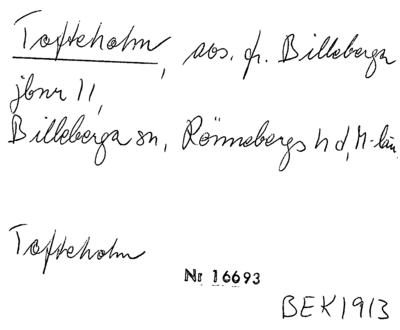 Tofteholm, sos. fr. Billeberga
jbnr 11,
Billeberga sn, Rönnebergs hd, M-län,
Tofteholm
Nr 16693
BEK 1913